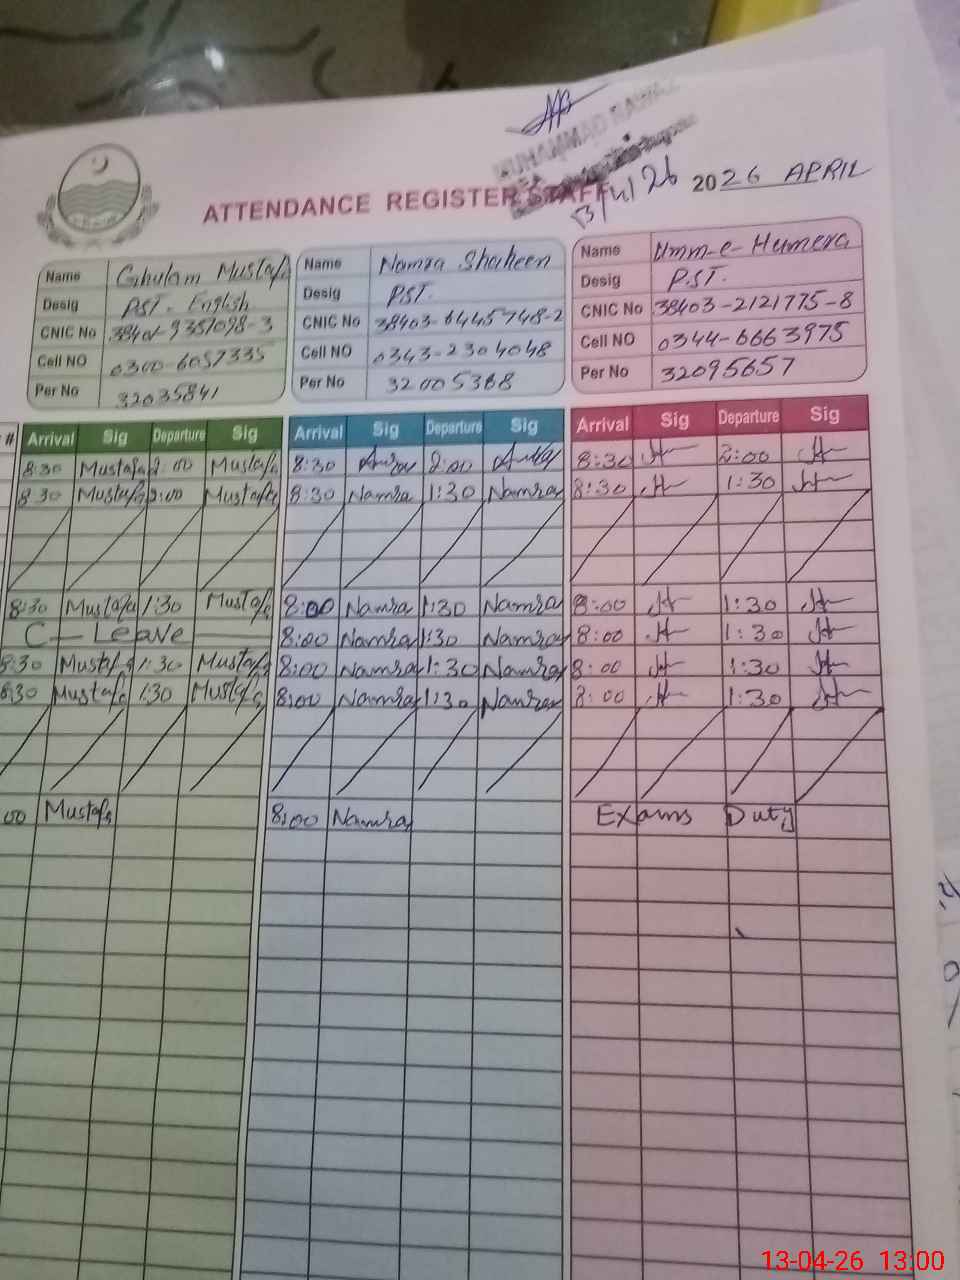 MUHAMMAD NAWAZ
ATTENDANCE REGISTER STAFF 13/4/26 2026 APRIL
Name Ghulam Mustafa
Desig PST. English
CNIC No 38401-9357098-3
Cell NO 0300-6057335
Per No 32035841
Name Namra Shaheen
Desig PST.
CNIC No 38403-6445748-2
Cell NO 0343-2304048
Per No 32005368
Name Umm-e-Humera
Desig P.ST.
CNIC No 38403-2121775-8
Cell NO 0344-6663975
Per No 32095657
# Arrival Sig Departure Sig Arrival Sig Departure Sig Arrival Sig Departure Sig
8:30 Mustafa 2:00 Mustafa 8:30 2:00 8:30 2:00
8:30 Mustafa 2:00 Mustafa 8:30 Namra 1:30 Namra 8:30 1:30
8:30 Mustafa 1:30 Mustafa 8:00 Namra 1:30 Namra 8:00 1:30
C-Leave 8:00 Namra 1:30 Namra 8:00 1:30
8:30 Mustafa 1:30 Mustafa 8:00 Namra 1:30 Namra 8:00 1:30
8:30 Mustafa 1:30 Mustafa 8:00 Namra 1:30 Namra 8:00 1:30
00 Mustafa 8:00 Namra Exams Duty
13-04-26 13:00